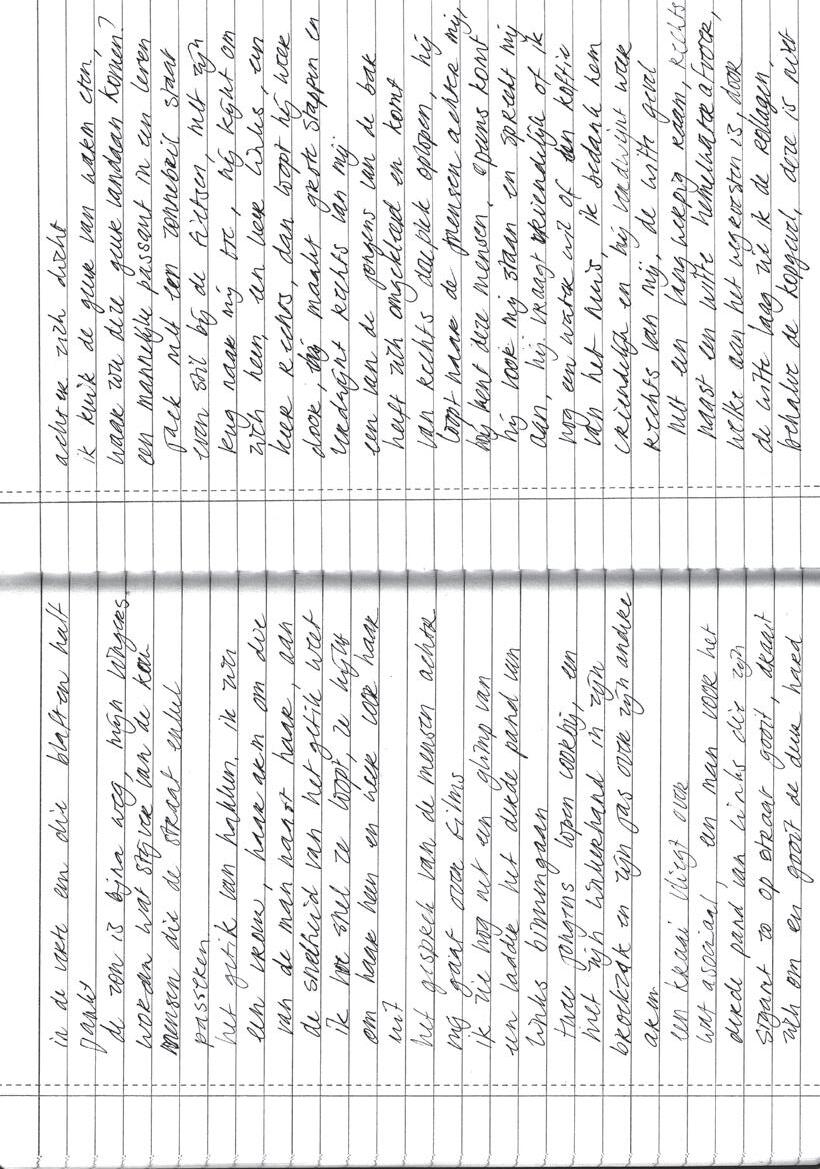 in de verte en die blaft en half
jankt
de zon is bijna weg, mijn vingers
worden wat stijver van de kou
mensen die de straat enkel
passeren
het getik van hakken, ik zie
een vrouw, haar arm om die
van de man naast haar aan
de snelheid van het getik weet
ik hoe snel ze loopt, ze kijkt
om haar heen en weer voor haar
uit
het gesprek van de mensen achter
mij gaat over films
ik zie nog net een glimp van
een laddie het derde pand van
links binnengaan
twee jongens lopen voorbij, een
met zijn linkerhand in zijn
broekzak en zijn jas over zijn andere
arm
een kraai vliegt over
wat asociaal, een man voor het
derde pand van links die zijn
sigaret zo op straat gooit, draait
zich om en gooit de deur hard
achter zich dicht
ik ruik de geur van warm eten,
waar zou deze geur vandaan komen?
een mannelijke passant in een leren
jack met een zonnebril staat
even stil bij de fietsen, met zijn
rug naar mij toe, hij kijkt om
zich heen, en weer links, en
weer rechts, dan loopt hij weer
door, hij maakt grote stappen en
verdwijnt rechts van mij
een van de jongens van de bar
heeft zich omgekleed en komt
van rechts deze plek oplopen, hij
loopt naar de mensen achter mij,
hij kent deze mensen, opeens komt
hij voor mij staan en spreekt mij
aan, hij vraagt vriendelijk of ik
nog een water wil of een koffie
van het huis, ik bedank hem
vriendelijk en hij verdwijnt weer
rechts van mij, de witte geul
met een langwerpig raam, rechts
naast een witte hemelwaterafvoer,
welke aan het wegroesten is, door
de witte laag zie ik de rollagen,
behalve de kopgevel, deze is niet